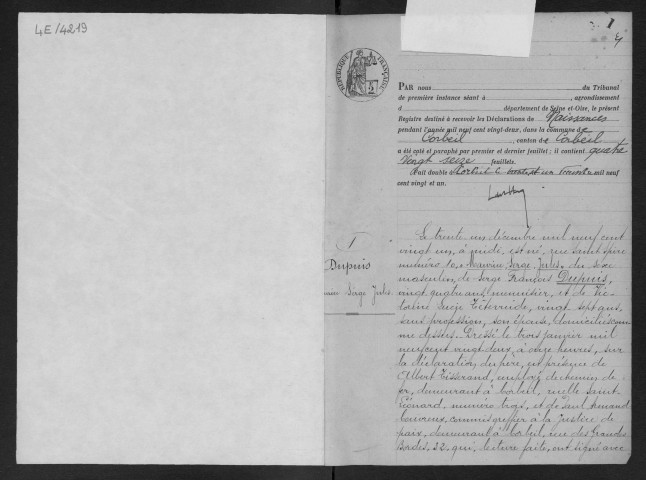 4E/4219
1
4
RÉPUBLIQUE FRANÇAISE
PAR nous du Tribunal
de première instance séant à , arrondissement
d département de Seine-et-Oise, le présent
Registre destiné à recevoir les Déclarations de Naissances
pendant l'année mil neuf cent vingt-deux, dans la commune de
Corbeil, canton de Corbeil
a été coté et paraphé par premier et dernier feuillet; il contient quatre
vingt seize feuillets.
Fait double à Corbeil le trente et un mil neuf
cent vingt et un.
1
Dupuis
Maurice Serge Jules
Le trente un décembre mil neuf cent
vingt un, à midi, est né, rue Saint Spire
numéro 10, Maurice Serge Jules, du sexe
masculin, de Serge François Dupuis,
vingt quatre ans, menuisier, et de Vic-
torine Lucie, vingt sept ans,
sans profession, son épouse, domiciliés com-
me dessus. Dressé le trois janvier mil
neuf cent vingt deux, à onze heures, sur
la déclaration du père, en présence de
Albert Tisserand, employé de chemin de
fer, demeurant à Corbeil, ruelle Saint
Léonard, numéro trois, et de Paul Armand
commis greffier à la Justice de
paix, demeurant à Corbeil, rue des Grandes
Bordes, 22, qui, lecture faite, ont signé avec